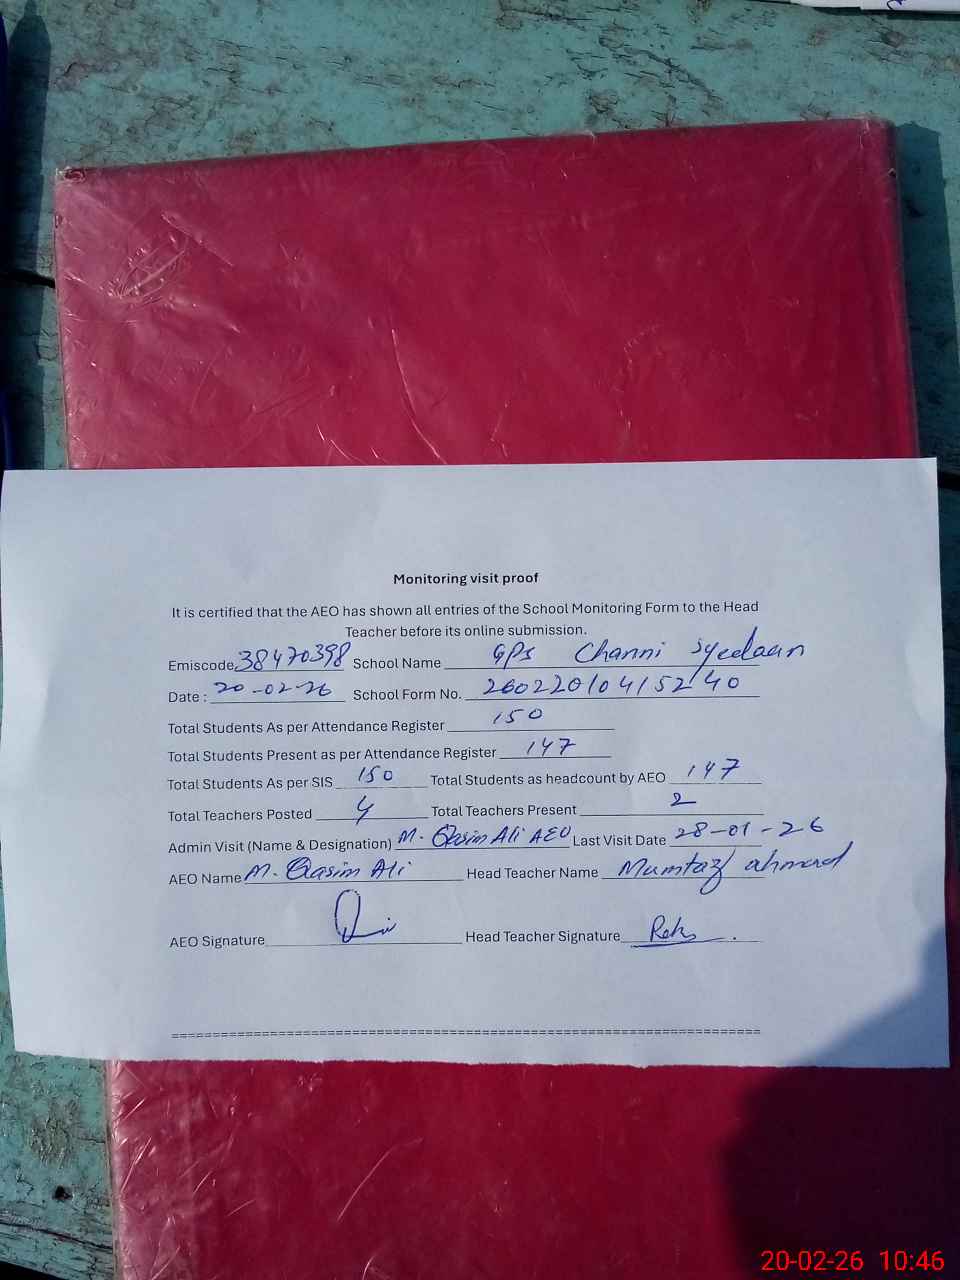 Monitoring visit proof
It is certified that the AEO has shown all entries of the School Monitoring Form to the Head
Teacher before its online submission.
Emiscode 38470398 School Name GPS Channi Syedaan
Date : 20-02-26 School Form No. 26022010415240
Total Students As per Attendance Register 150
Total Students Present as per Attendance Register 147
Total Students As per SIS 150 Total Students as headcount by AEO 147
Total Teachers Posted 4 Total Teachers Present 2
Admin Visit (Name & Designation) M. Qasim Ali AEO Last Visit Date 28-01-26
AEO Name M. Qasim Ali Head Teacher Name Mumtaz ahmad
AEO Signature Head Teacher Signature
20-02-26 10:46